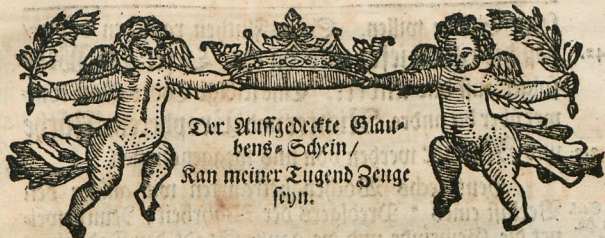 Der Auffgedeckte Glau-
bens-Schein/
Kan meiner Tugend Zeuge
seyn.